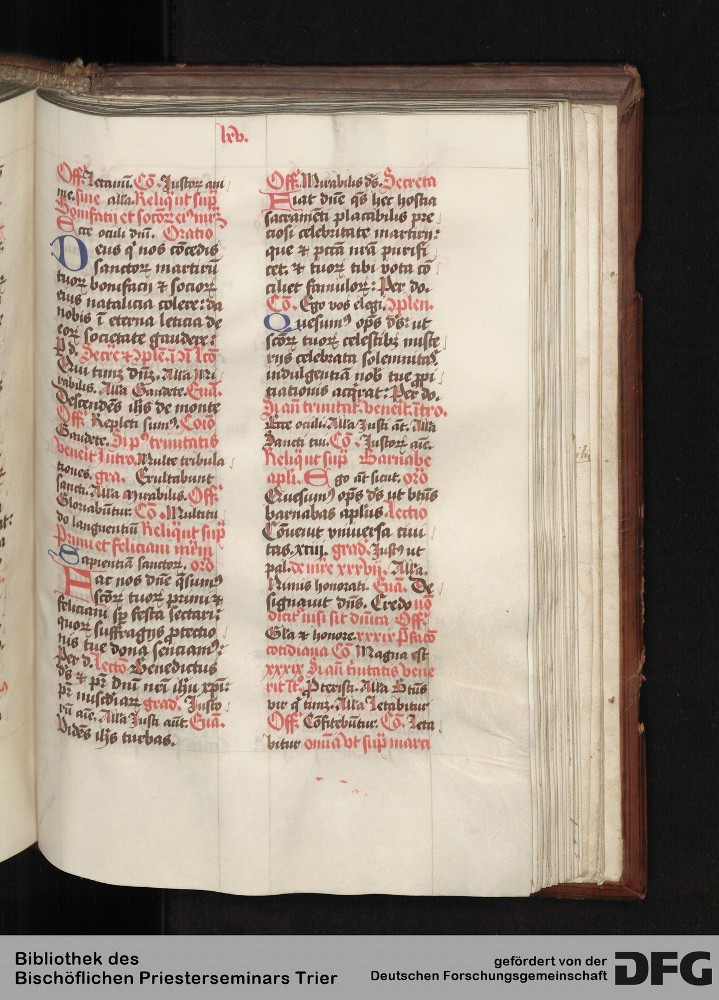 lxv.
Off. Letamini. Cō. Justorꝝ ani
me. sine alla. Reliq̄ ut sup̄
Bonifacii et socorꝝ eiꝰ mr̄ꝝ
Ecce oculi dn̄i. Oratio
Deus q̄ nos cōcedis
sanctorꝝ martirū
tuorꝝ bonifacii ⁊ sociorꝝ
eius natalicia colere: da
nobis ī eterna leticia de
eorꝝ societate gaudere:
P. d.
Qui timz dn̄z. Alla Mi
rabilis. Alla Gaudete. Euā.
Descendēs ih̄s de monte
Off. Repleti sumꝰ. Coīo
Gaudete. Si pꝰ trinitatis
veneīt Intro. Multe tribula
tiones. gra. Exultabunt
sancti. Alla Mirabilis. Off.
Gloriabūtur. Cō. Multitu
do languentiū Reliq̄ ut sup̄
Primi et feliciani mr̄m
Sapientiā sanctorꝝ. oro
Fac nos dn̄e q̄sumꝰ
sc̄orꝝ tuorꝝ primi ⁊
feliciani sp̄ festa sectari:
quorꝝ suffragijs ꝓtectio
nis tue dona senciamꝰ:
Per d. Lectō Benedictus
ds̄ ⁊ pr̄ dn̄i nr̄i ih̄u xp̄i:
pr̄ misc̄diarꝝ grad. Justo
rū aīe. Alla Justi aūt. Euā.
Videns ih̄s turbas.
Off. Mirabilis ds̄. Secreta
Fiat dn̄e q̄s hec hostia
sacramēti placabilis pre
ciosi celebritate martirij:
que ⁊ pctā nr̄a purifi
cet. ⁊ tuorꝝ tibi vota cō
ciliet famulorꝝ: Per do.
Cō. Ego vos elegi. ꝯplen.
Quesumꝰ op̄s ds̄: ut
sc̄orꝝ tuorꝝ celestibꝫ miste
rijs celebrata solemnitas
indulgentiā nob̄ tue ꝓpi
ciationis acq̄rat: Per do.
Si aūt trinitat. veneīt. ītro.
Ecce oculi. Alla Justi āt. Alla
Sancti tui. Cō. Justorꝝ aīe.
Reliq̄ ut sup̄ Barnabe
apli. Ego āt sicut. oro
Quesumꝰ op̄s ds̄ ut btūs
barnabas aplus. Lectio
Cōvenit universa civi
tas. xciij. grad. Justꝰ ut
pal. de mr̄e xxxvij. Alla.
Nimis honorati. Euā. De
signavit dn̄s. Credo nō
dicit̄ nisi sit dn̄ica Off.
Gl̄a ⁊ honore. xxxix Pfacō
cotidiana Cō Magna est
xxxix Si aūt t̄nitatis vene
rit Īt̄. Protexisti. Alla Btūs
vir q̄ timz. Alla Letabitur
Off. Cōfitebūtur. Cō. Leta
bitur omīa ut sup̄ marci
Bibliothek des
Bischöflichen Priesterseminars Trier
gefördert von der
Deutschen Forschungsgemeinschaft
DFG